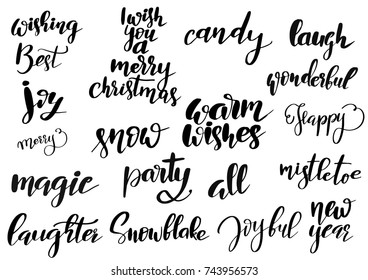 wishing
Best
joy
merry
I wish
you
a
merry
christmas
candy
laugh
wonderful
Happy
snow
warm
wishes
magic
party
all
mistletoe
laughter
Snowflake
Joyful
new
year
shutterstock.com · 743956573